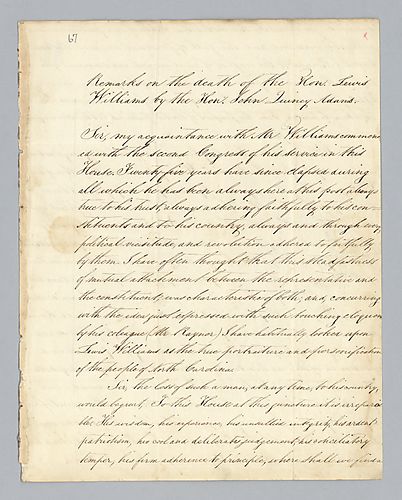 67
Remarks on the death of the Hon. Lewis
Williams by the Hon. John Quincy Adams.
Sir, my acquaintance with Mr Williams commenc
ed with the second Congress of his service in this
House. Twenty five years have since elapsed during
all which he has been always here at his post always
true to his trust, always adhering faithfully to his con-
stituents and to his country, always and through every
political vicissitude, and revolution adhered to faithfully
by them. I have often thought that this steadfastness
of mutual attachment between the representative and
the constituent, was characteristic of both; and, concurring
with the idea just expressed with such touching eloquence
by his colleague (Mr Raynor) I have habitually looked upon
Lewis Williams as the true portraiture and personification
of the people of North Carolina.
Sir, the loss of such a man, at any time, to his country,
would be great. To this House at this juncture it is irrepara
ble His wisdom, his experience, his unsullied integrity, his ardent
patriotism, his cool and deliberate judgement, his conciliatory
temper, his firm adherence to principle, where shall we find a